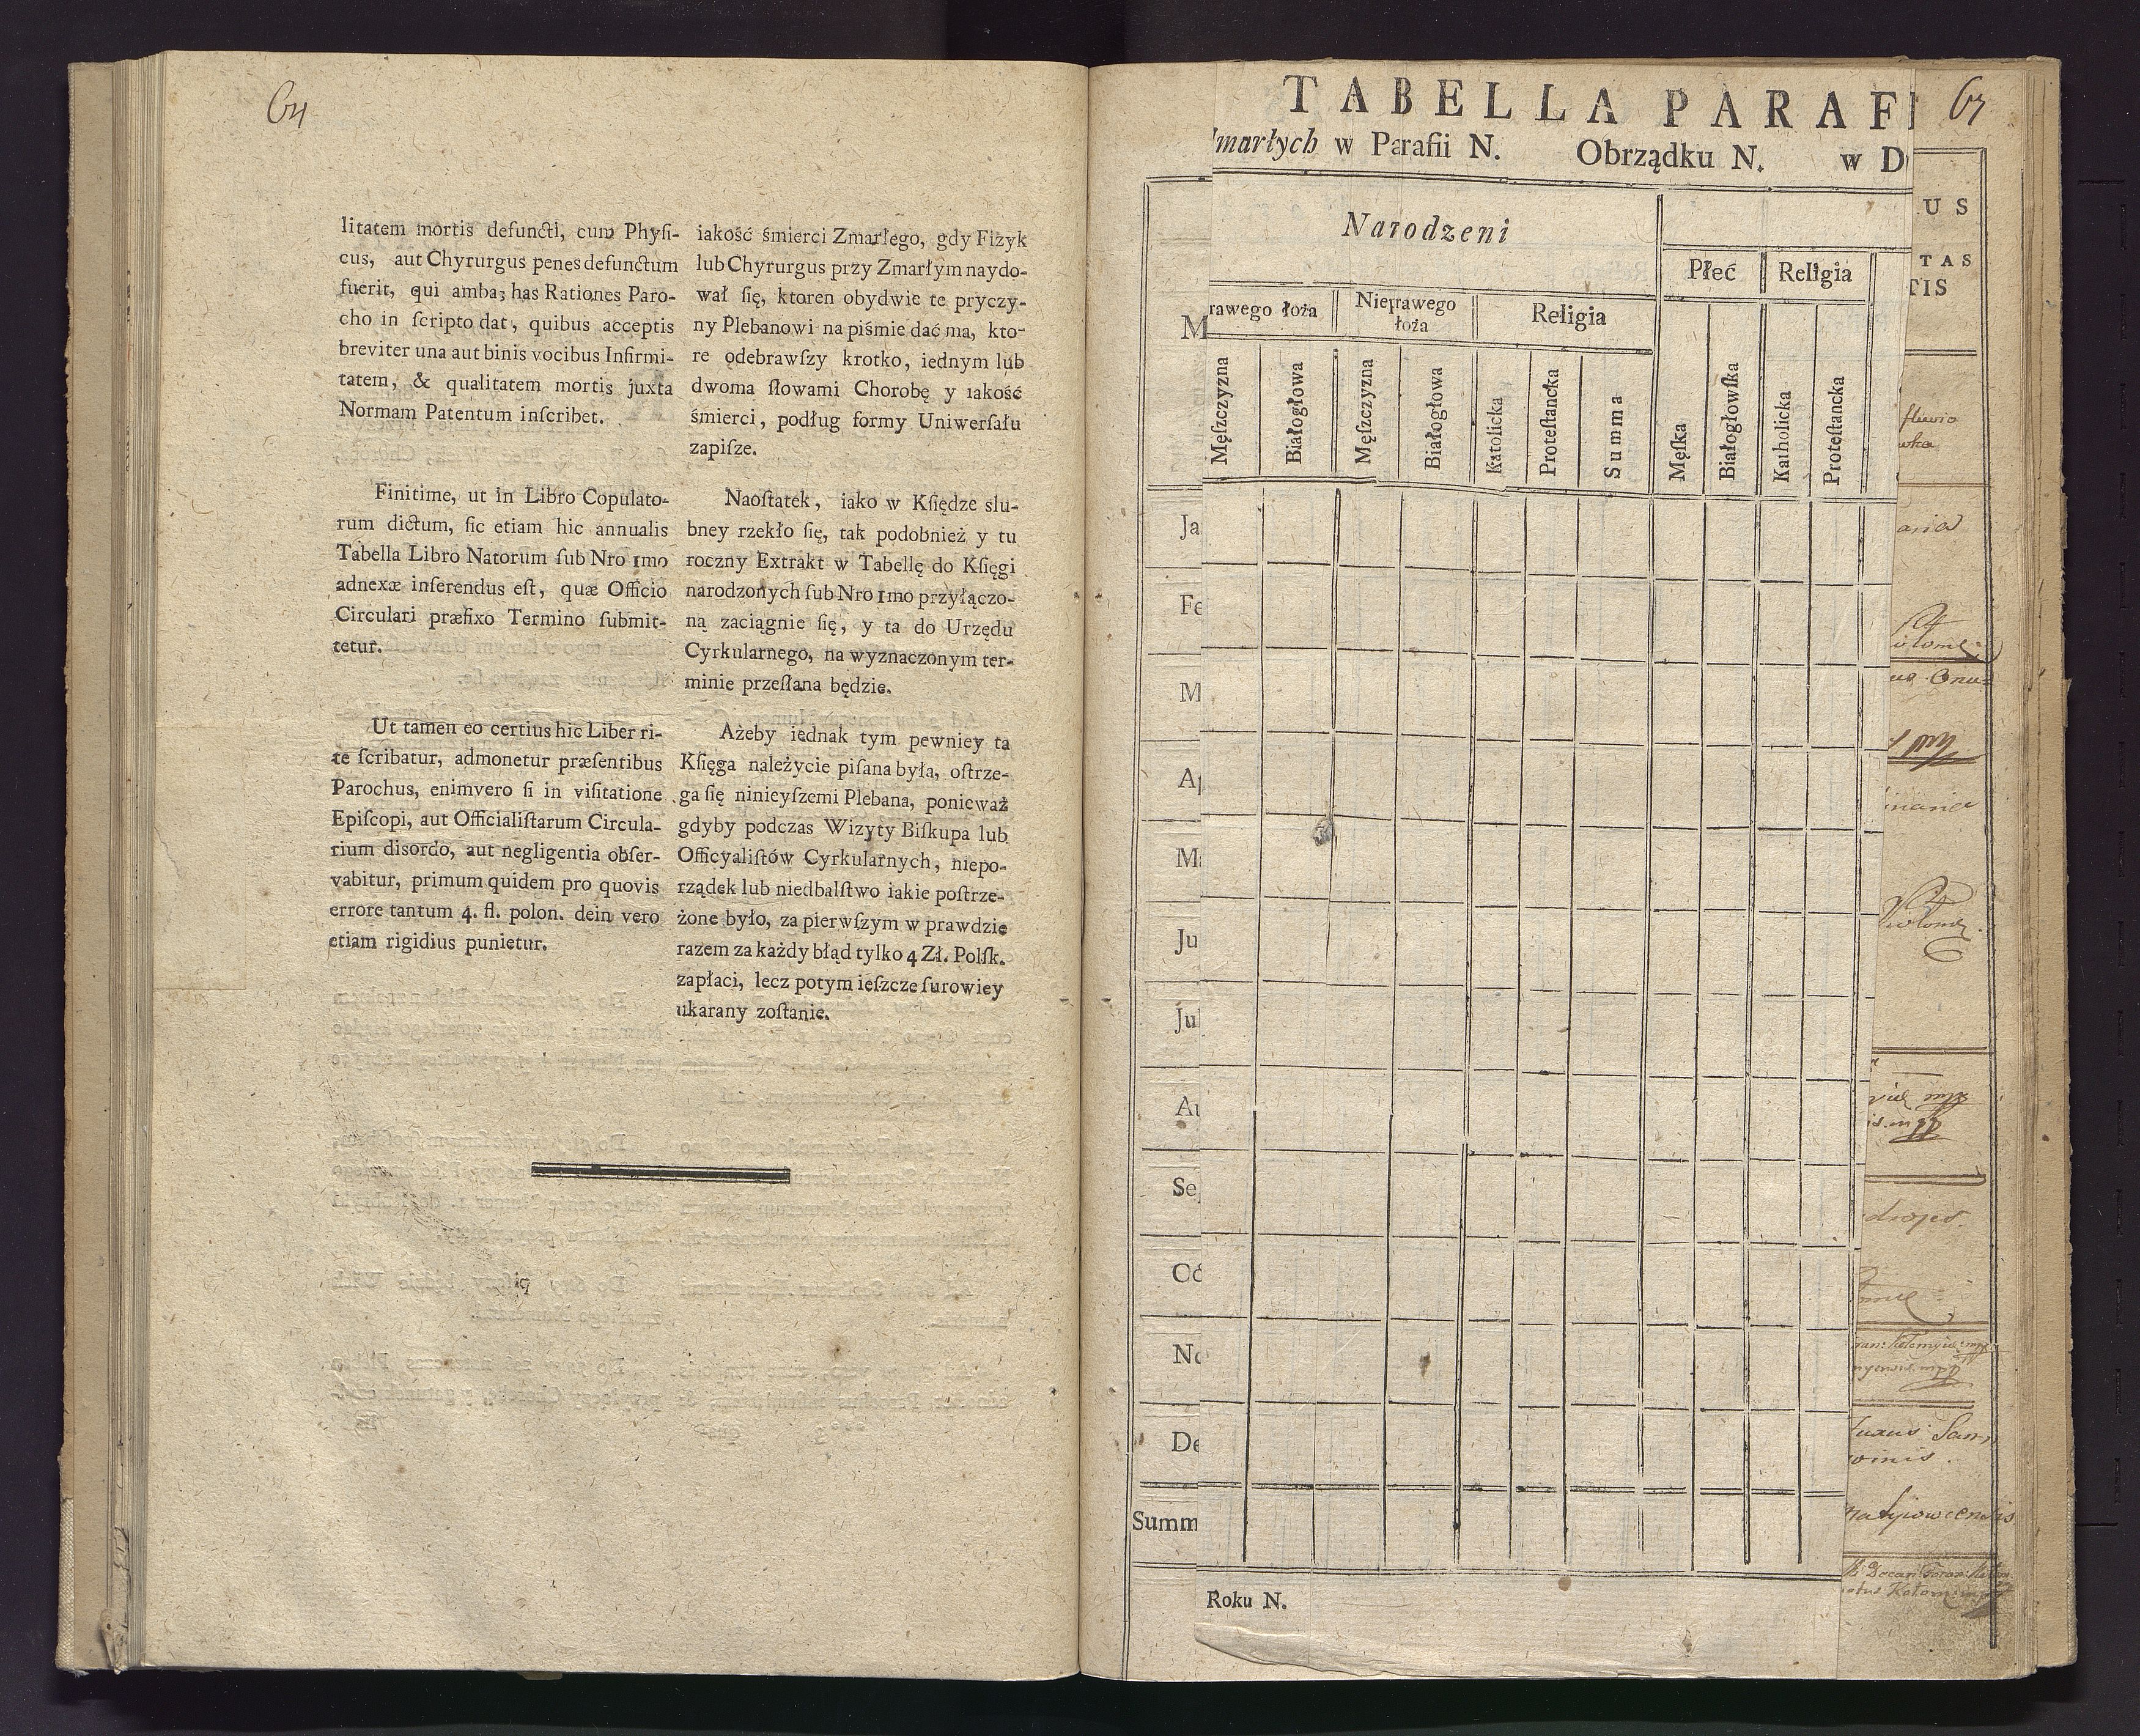 64
litatem mortis defuncti, cum Phyſi-
cus, aut Chyrurgus penes defunctum
fuerit, qui ambas has Rationes Paro-
cho in ſcripto dat, quibus acceptis
breviter una aut binis vocibus Infirmi-
tatem, & qualitatem mortis juxta
Normam Patentum inſcribet.
Finitime, ut in Libro Copulato-
rum dictum, ſic etiam hic annualis
Tabella Libro Natorum ſub Nro 1mo
adnexæ inſerendus eſt, quæ Officio
Circulari præfixo Termino ſubmit-
tetur.
Ut tamen eo certius hic Liber ri-
te ſcribatur, admonetur præſentibus
Parochus, enimvero ſi in viſitatione
Epiſcopi, aut Officialiſtarum Circula-
rium disordo, aut negligentia obſer-
vabitur, primum quidem pro quovis
errore tantum 4. fl. polon. dein vero
etiam rigidius punietur.
iakość śmierci Zmarłego, gdy Fizyk
lub Chyrurgus przy Zmarłym naydo-
wał ſię, ktoren obydwie te pryczy-
ny Plebanowi na piśmie dać ma, kto-
re odebrawſzy krotko, iednym lub
dwoma ſłowami Chorobę y iakość
śmierci, podług formy Uniwerſału
zapiſze.
Naoſtatek, iako w Kſiędze slu-
bney rzekło ſię, tak podobnież y tu
roczny Extrakt w Tabellę do Kſięgi
narodzonych ſub Nro 1mo przyłączo-
ną zaciągnie ſię, y ta do Urzędu
Cyrkularnego, na wyznaczonym ter-
minie przeſłana będzie.
Ażeby iednak tym pewniey ta
Kſięga należycie piſana była, oſtrze-
ga się ninieyſzemi Plebana, ponieważ
gdyby podczas Wizyty Biſkupa lub
Officyaliſtów Cyrkularnych, niepo-
rządek lub niedbalſtwo iakie poſtrze-
żone było, za pierwſzym w prawdzie
razem za każdy błąd tylko 4 Zł. Polſk.
zapłaci, lecz potym ieſzcze ſurowiey
ukarany zoſtanie.
TABELLA PARAFI
marłych w Parafii N. Obrządku N. w D
Narodzeni
Płeć
Religia
rawego łoża
Nieprawego
łoża
Religia
M
Męſzczyzna
Białogłowa
Męſzczyzna
Białogłowa
Katolicka
Proteſtancka
Summa
Męſka
Białogłowſka
Katholicka
Proteſtancka
Ja
Fe
M
Ap
Ma
Ju
Jul
Au
Se
Oc
No
De
Summ
Roku N.
US
TAS
TIS